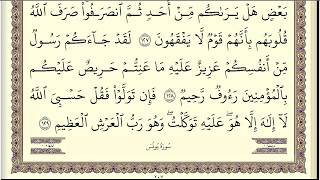 بَعْضٍ هَلْ يَرَىٰكُم مِّنْ أَحَدٍ ثُمَّ ٱنصَرَفُوا۟ صَرَفَ ٱللَّهُ
قُلُوبَهُم بِأَنَّهُمْ قَوْمٌ لَّا يَفْقَهُونَ ١٢٧ لَقَدْ جَآءَكُمْ رَسُولٌ
مِّنْ أَنفُسِكُمْ عَزِيزٌ عَلَيْهِ مَا عَنِتُّمْ حَرِيصٌ عَلَيْكُم
بِٱلْمُؤْمِنِينَ رَءُوفٌ رَّحِيمٌ ١٢٨ فَإِن تَوَلَّوْا۟ فَقُلْ حَسْبِىَ ٱللَّهُ
لَآ إِلَٰهَ إِلَّا هُوَ عَلَيْهِ تَوَكَّلْتُ وَهُوَ رَبُّ ٱلْعَرْشِ ٱلْعَظِيمِ ١٢٩
سُورَةُ يُونُسَ